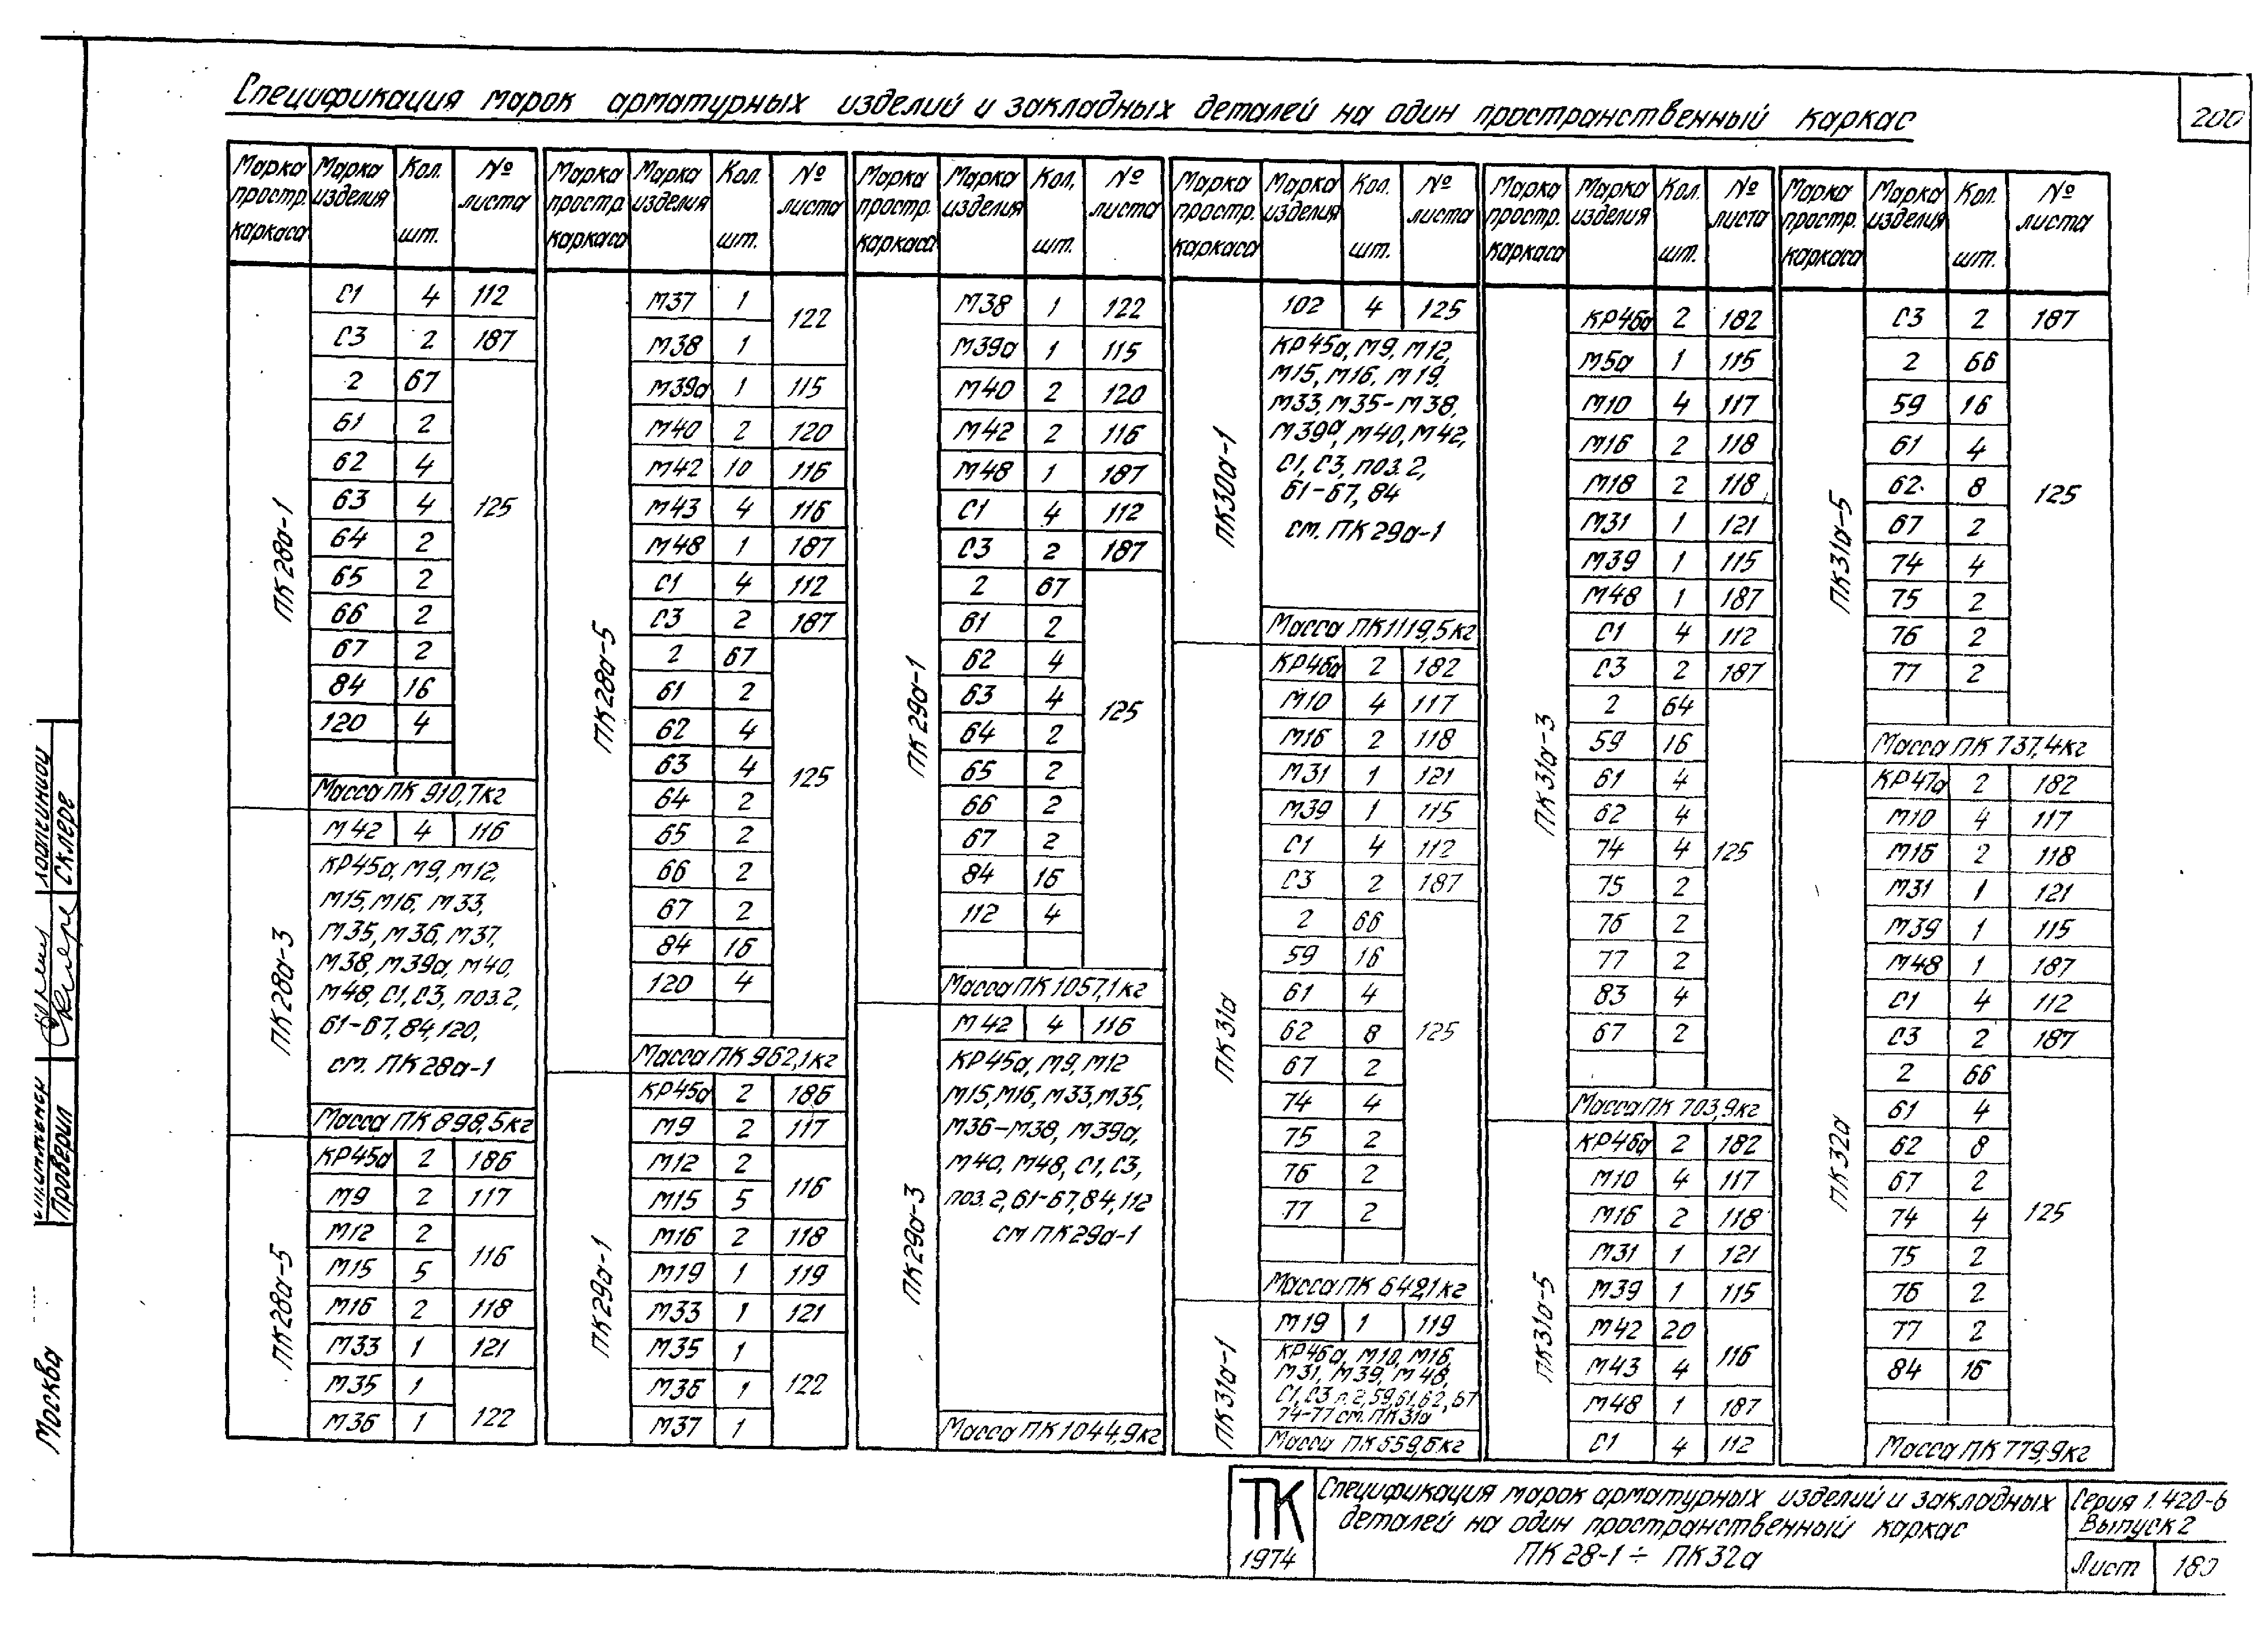 Спецификация марок арматурных изделий и закладных деталей на один пространственный каркас
200
Марка простр. каркаса Марка изделия Кол. шт. № листа
С1 4 112
С3 2 187
2 67
61 2
62 4
63 4
64 2
65 2
66 2
67 2
84 16
120 4
125
ПК28а-1
Масса ПК 910,7кг
М42 4 116
КР45а, М9, М12,
М15, М16, М33,
М35, М36, М37,
М38, М39а, М40,
М48, С1, С3, поз.2,
61-67, 84, 120,
см. ПК28а-1
ПК28а-3
Масса ПК 898,5кг
КР45а 2 186
М9 2 117
М12 2
М15 5
116
М16 2 118
М33 1 121
М35 1
М36 1
122
ПК28а-5
Марка простр. каркаса Марка изделия Кол. шт. № листа
М37 1
М38 1
122
М39а 1 115
М40 2 120
М42 10 116
М43 4 116
М48 1 187
С1 4 112
С3 2 187
2 67
61 2
62 4
63 4
64 2
65 2
66 2
67 2
84 16
120 4
125
ПК28а-5
Масса ПК 962,1кг
КР45а 2 186
М9 2 117
М12 2
М15 5
116
М16 2 118
М19 1 119
М33 1 121
М35 1
М36 1
М37 1
122
ПК29а-1
Марка простр. каркаса Марка изделия Кол. шт. № листа
М38 1 122
М39а 1 115
М40 2 120
М42 2 116
М48 1 187
С1 4 112
С3 2 187
2 67
61 2
62 4
63 4
64 2
65 2
66 2
67 2
84 16
112 4
125
ПК29а-1
Масса ПК 1057,1кг
М42 4 116
КР45а, М9, М12
М15, М16, М33, М35,
М36-М38, М39а,
М40, М48, С1, С3,
поз.2, 61-67, 84, 112
см ПК29а-1
ПК29а-3
Масса ПК 1044,9кг
Марка простр. каркаса Марка изделия Кол. шт. № листа
102 4 125
КР45а, М9, М12,
М15, М16, М19,
М33, М35-М38,
М39а, М40, М42,
С1, С3, поз.2,
61-67, 84
см. ПК29а-1
ПК30а-1
Масса ПК1119,5кг
КР46а 2 182
М10 4 117
М16 2 118
М31 1 121
М39 1 115
С1 4 112
С3 2 187
2 66
59 16
61 4
62 8
67 2
74 4
75 2
76 2
77 2
125
ПК31а
Масса ПК 649,1кг
М19 1 119
КР46а, М10, М16,
М31, М39, М48,
С1, С3 п.2, 59, 61, 62, 67
74-77 см. ПК31а
ПК31а-1
Масса ПК 659,6кг
Марка простр. каркаса Марка изделия Кол. шт. № листа
КР46а 2 182
М5а 1 115
М10 4 117
М16 2 118
М18 2 118
М31 1 121
М39 1 115
М48 1 187
С1 4 112
С3 2 187
2 64
59 16
61 4
62 4
74 4
75 2
76 2
77 2
83 4
67 2
125
ПК31а-3
Масса ПК 703,9кг
КР46а 2 182
М10 4 117
М16 2 118
М31 1 121
М39 1 115
М42 20
М43 4
116
М48 1 187
С1 4 112
ПК31а-5
Марка простр. каркаса Марка изделия Кол. шт. № листа
С3 2 187
2 66
59 16
61 4
62 8
67 2
74 4
75 2
76 2
77 2
125
ПК31а-5
Масса ПК 737,4кг
КР47а 2 182
М10 4 117
М16 2 118
М31 1 121
М39 1 115
М48 1 187
С1 4 112
С3 2 187
2 66
61 4
62 8
67 2
74 4
75 2
76 2
77 2
84 16
125
ПК32а
Масса ПК 779,9кг
ТК
1974
Спецификация марок арматурных изделий и закладных
деталей на один пространственный каркас
ПК 28-1 ÷ ПК32а
Серия 1.420-6
Выпуск 2
Лист
Проверил
Скляре
Москва